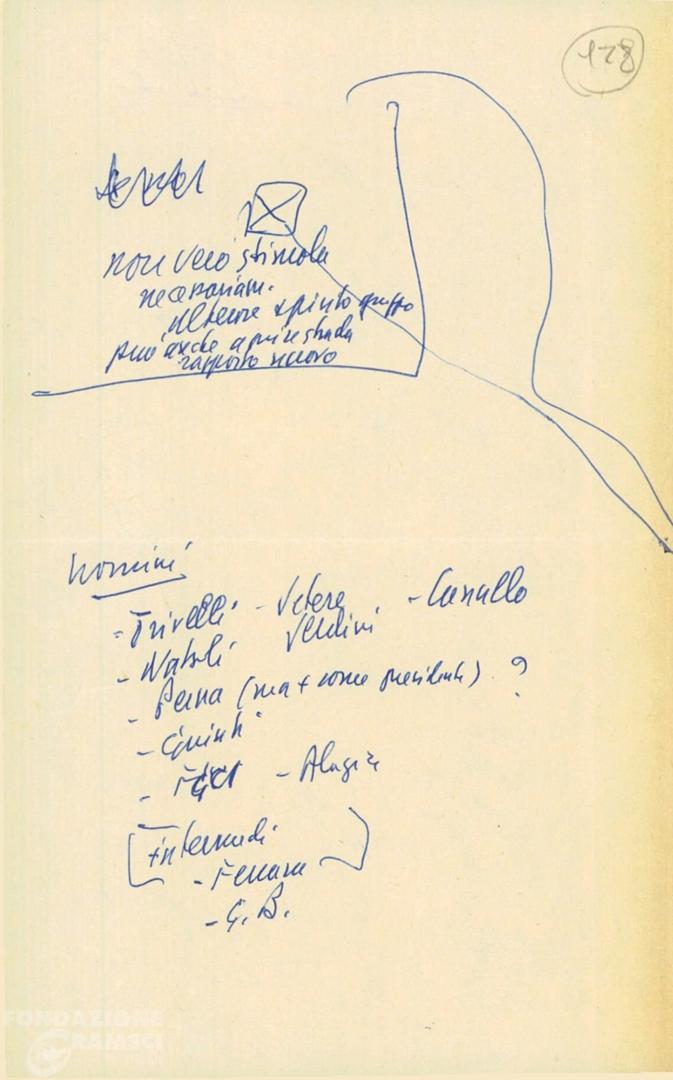 128
non vero stimola
necessariam.
ulteriore spinta gruppo
può anche aprire strada
rapporto nuovo
nomini
- Trivelli - Vetere - Canullo
- Natoli Verdini
- Perna (ma + come presidente) ?
-
- FGCI -
[Internardi
- Ferrara]
- G. B.
FONDAZIONE
GRAMSCI